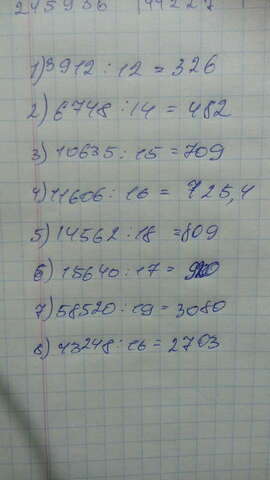 245936 144227
1) 3912 : 12 = 326
2) 6748 : 14 = 482
3) 10635 : 15 = 709
4) 11606 : 16 = 725,4
5) 14562 : 18 = 809
6) 15640 : 17 = 920
7) 58520 : 19 = 3080
8) 43248 : 16 = 2703